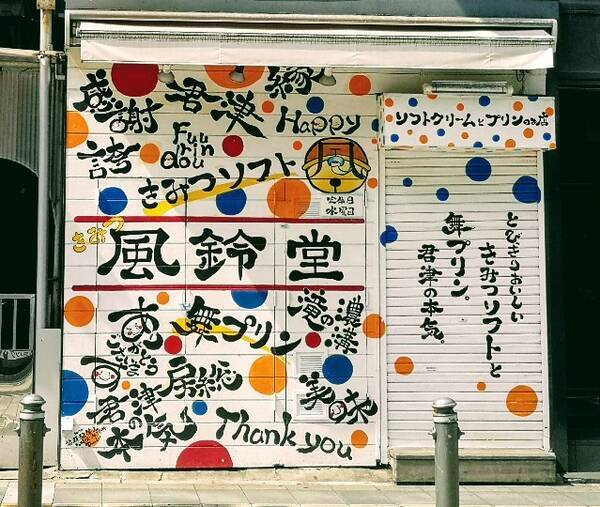 縁
感謝
君津
Happy
誇
Fuu
rin
dou
きみつソフト
風
定休日
水曜日
きみつ
風鈴堂
無プリン
濃溝
滝の
房総
君津
の本気
Thank you
ソフトクリームとプリンのお店
とびきりおいしい
きみつソフトと
無プリン。
君津の本気。